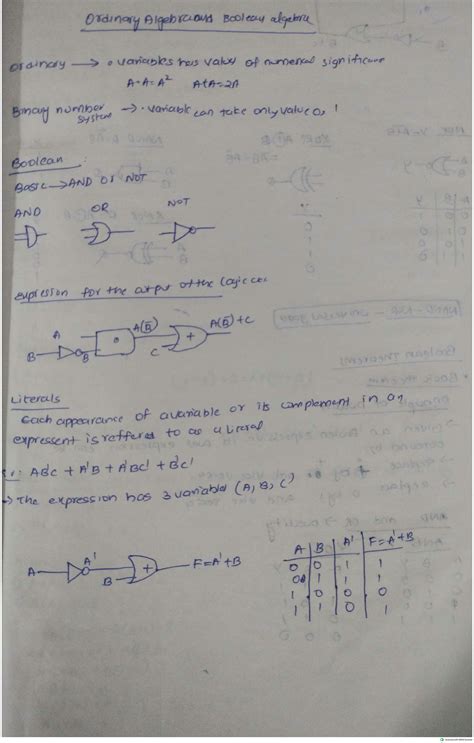 Ordinary Algebra and Boolean algebra
Ordinary → • variables has value of numerical significane
A·A = A² A+A = 2A
Binary number system → • variable can take only value 0, 1
Boolean :
Basic → AND OR NOT
AND OR NOT
Expression for the output of the logic
A
B B̅ A(B̅) A(B̅)+C
C +
Literals
Each appearance of a variable or its complement in an
expressent is reffered to as a literal
A'BC + A'B + A'BC' + B'C'
→ The expression has 3 variable (A, B, C)
A A' B + F = A'+B
A B A' F = A'+B
0 0 1 1
0 1 1 1
1 0 0 0
1 1 0 1